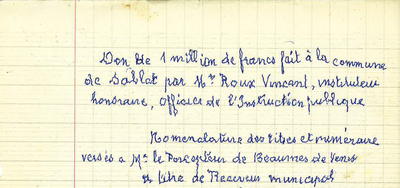 Don de 1 million de francs fait à la commune
de Sablet par Mr Roux Vincent, instituteur
honoraire, Officier de l'Instruction publique
Nomenclature des titres et numéraire
versés à Mr le Percepteur de Beaumes de Venise
à titre de Receveur municipal